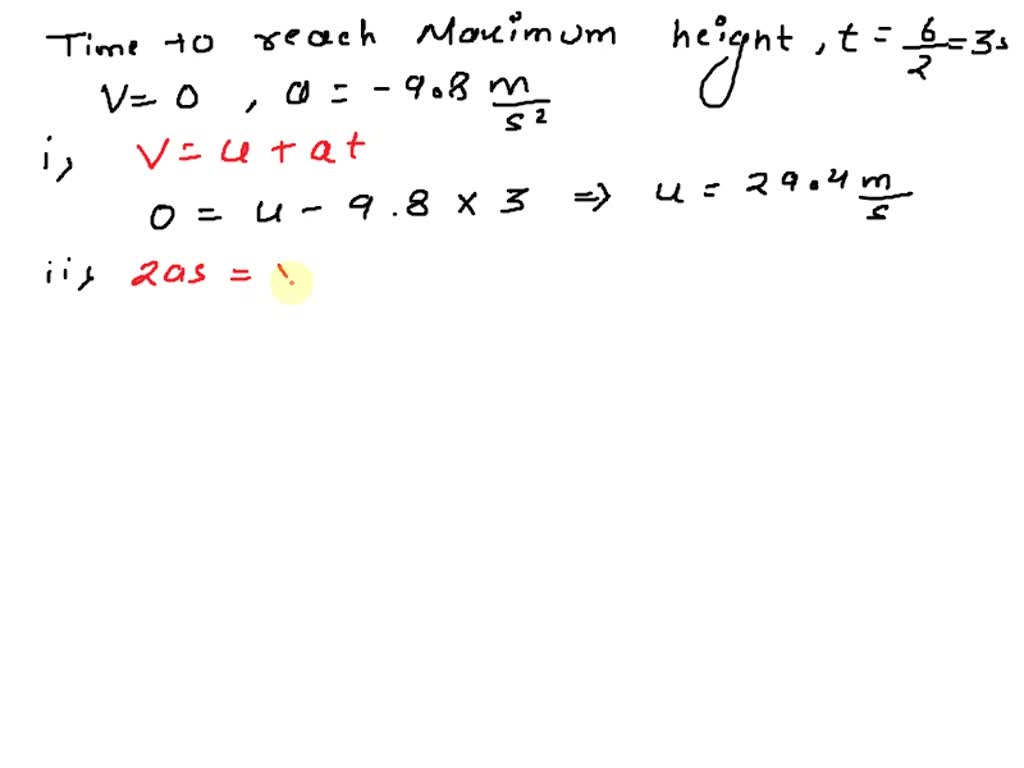 Time to reach Maximum height, t = 6/2 = 3s
V = 0 , a = - 9.8 m/s²
i, V = u + at
0 = u - 9.8 × 3 ⇒ u = 29.4 m/s
ii, 2as =